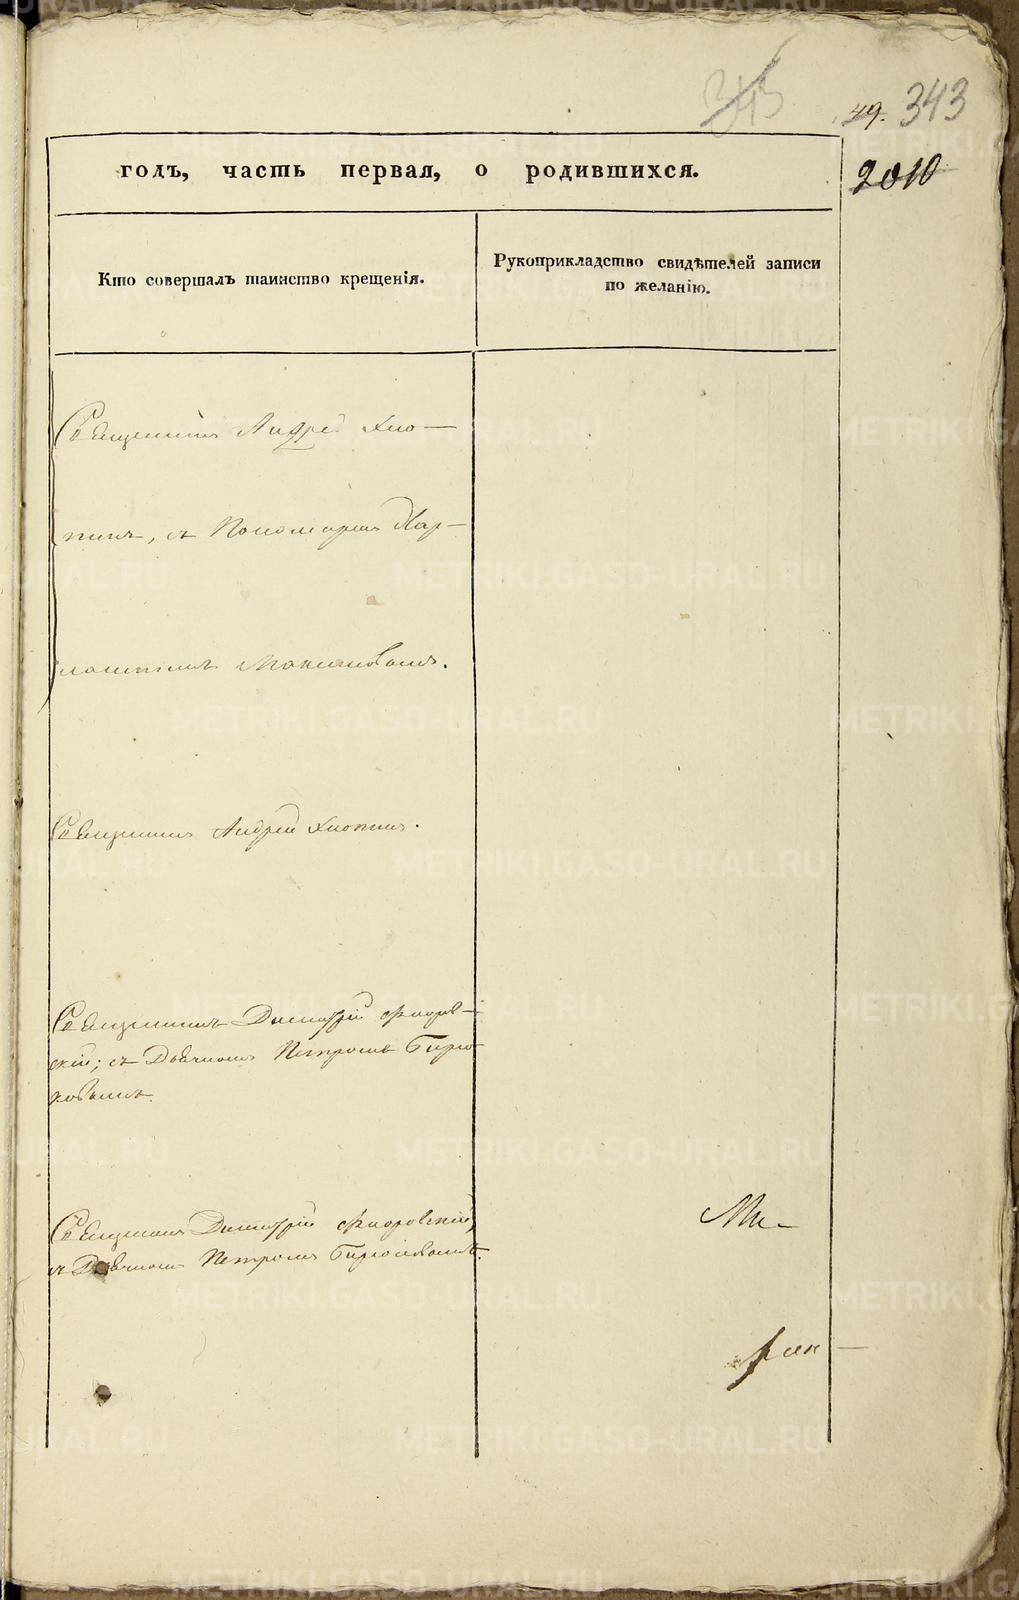 343
49. 343
годъ, часть первая, о родившихся.
2010
Кто совершалъ таинство крещенія.
Рукоприкладство свидѣтелей записи
по желанію.
Священникъ Андрей Хло-
пинъ, съ Пономаремъ Хар-
лампіемъ
Священникъ Андрей Хлопинъ.
Священникъ Димитрій Флоров-
скій; съ Дьячкомъ Петромъ Бирю-
ковымъ.
Священникъ Димитрій Флоровскій,
съ Дьячкомъ Петромъ Бирюковымъ.
METRIKI.GASO-URAL.RU